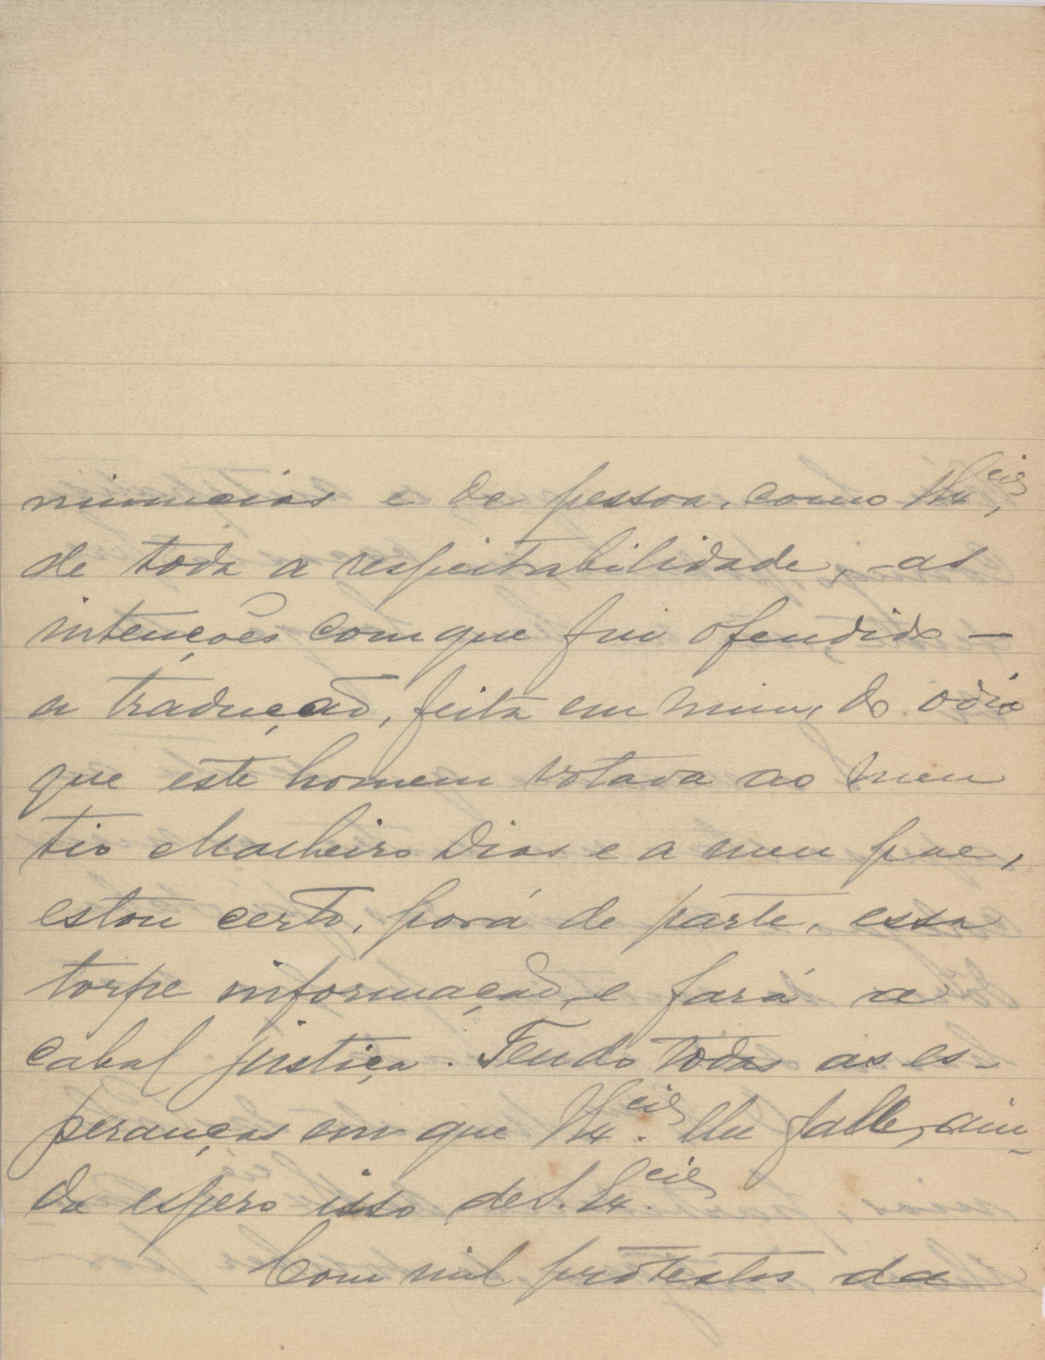 minucias e de pessoa, como V. Ex.cia,
de toda a respeitabilidade, – as
intenções com que fui ofendido –
a traducção, feita em mim, do odio
que este homem votava ao meu
tio Malheiro Dias e a meu pae,
estou certo, porá de parte, essa
torpe informação, e fará a
cabal justiça. Tendo todas as es-
peranças em que V. Ex.cia lhe falle, ain-
da espero isso de S. Ex.cia
Com mil protestos da